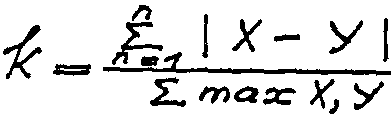 K = \frac{\sum_{n=1}^{n} | X - Y |}{\sum max X, Y}